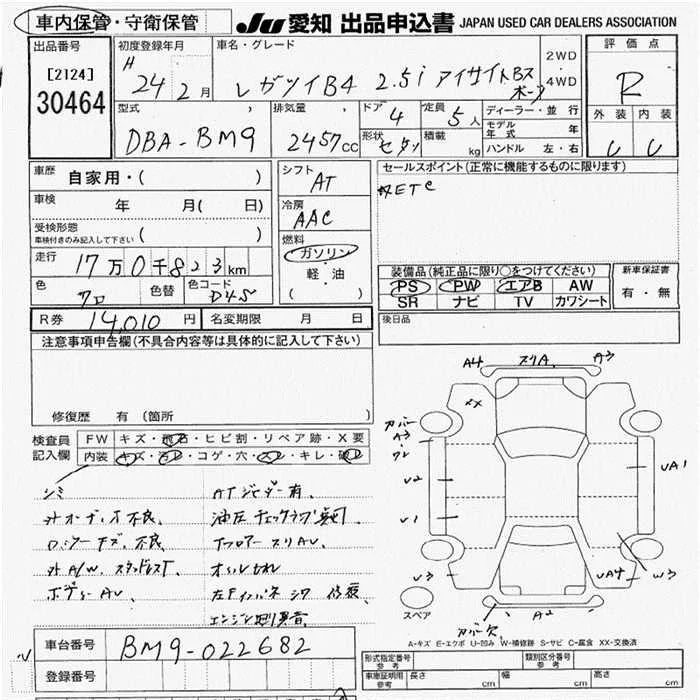 車内保管・守衛保管
JU 愛知 出品申込書 JAPAN USED CAR DEALERS ASSOCIATION
出品番号
[2124]
30464
初度登録年月
H 24年 2月
車名・グレード
レガツイB4 2.5i アイサイトBスポーツ
2WD
・
4WD
評価点
R
外装 内装
型式
DBA-BM9
排気量
2457cc
ドア 4
形状 セダン
定員 5人
積載 kg
ディーラー・並行
モデル年式 年
ハンドル 左・右
車歴 自家用・( )
車検 年 月( 日)
受検形態
車検付きのみ記入して下さい ( )
走行 17万0千823km
色 クロ
色替
色コード D4S
シフト
AT
冷房
AAC
燃料
ガソリン
軽・油
( )
セールスポイント(正常に機能するものに限ります)
ETC
装備品(純正品に限り○をつけてください)
PS PW エアB AW
SR ナビ TV カワシート
新車保証書
有・無
R券 14,010円
名変期限 月 日
後日品
注意事項申告欄(不具合内容等は具体的に記入して下さい)
修復歴 有(箇所 )
検査員記入欄
FW キズ・飛石・ヒビ割・リペア跡・X要
内装 キズ・汚レ・コゲ・穴・スレ・キレ・破レ
シミ
外オーディオ不良、
ロッカーキズ、不良
外A/W、スタッドレスT、
ボディーAU、
ATジャダー有、
油圧チェックランプ点灯
下フロアースリAU、
オイルもれ
左Fインパネ シワ 修復
エンジン回り異音、
A4 スリA、 A3
XX
カバー
A3
ワレ
U2
U1
U3
UA1
UA4
W3
A2
カバー欠
スペア
A-キズ E-エクボ U-凹み W-補修跡 S-サビ C-腐食 XX-交換済
車台番号 BM9-022682
登録番号
形式指定番号 参考
類別区分番号 参考
車庫証明用 参考 長さ cm 幅 cm 高さ cm